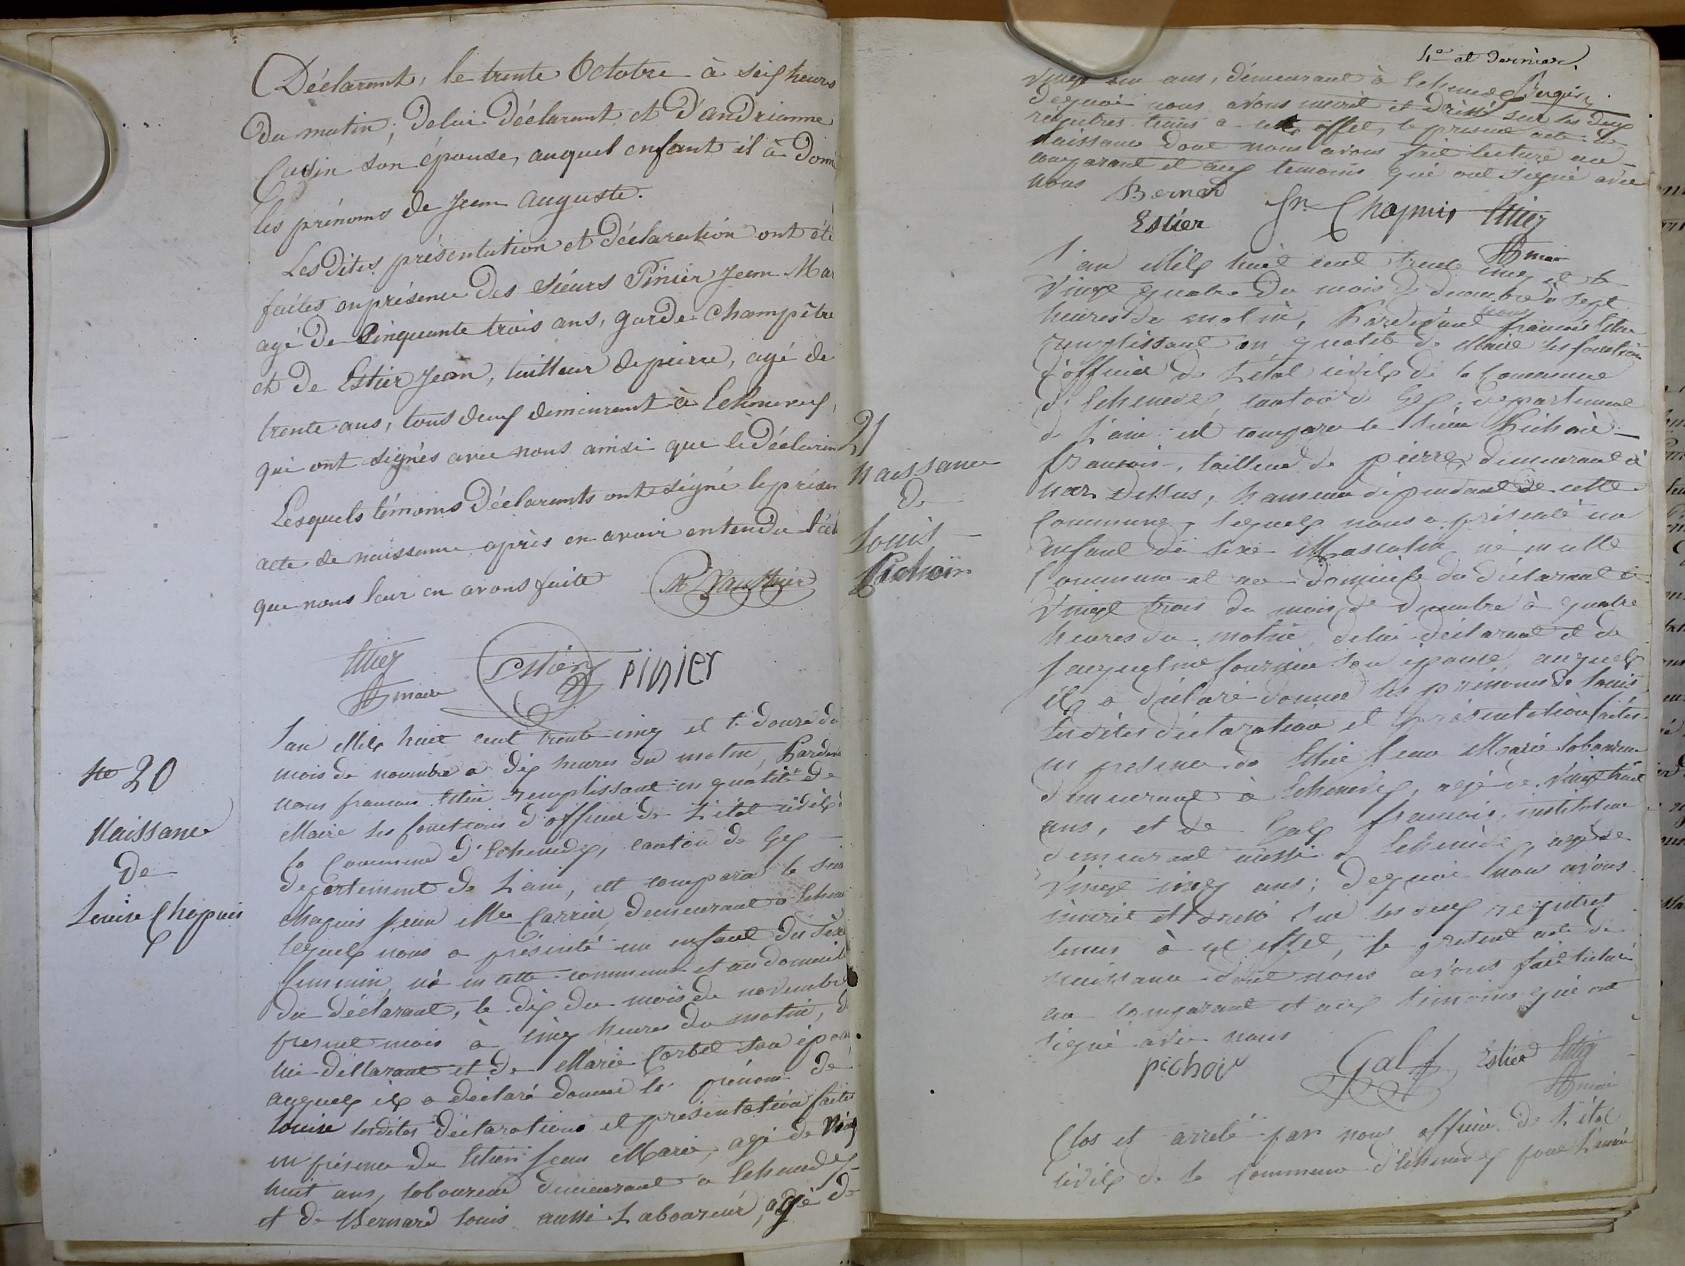 Déclarant, le trente Octobre à six heures
du matin; de lui déclarant et d'andrianne
son épouse, auquel enfant il à donné
les prénoms de Jean auguste.
Les dites présentation et déclaration ont été
faites en présence des Sieurs Pinier Jean Ma
agé de Cinquante trois ans, garde-Champêtre
et de Estier Jean, tailleur de pierre, agé de
trente ans, tous deux demeurant à Echenevex,
qui ont signés avec nous ainsi que le Déclarant
Lesquels témoins Déclarants ont signé le présen
acte de naissance après en avoir entendu
que nous leur en avons faite
Estier Pinier
maire
No 20
Naissance
De
Louise Chapuis
L'an Mil huit cent trente cinq et le douze du
mois de novembre a dix heures du matin, Pardevant
nous francois remplissant en qualité de
Maire les fonctions d'officier de L'état civil de
la Commune d'Echenevex, canton de Gex
département de L'ain, est comparu le sieur
Chapuis Jean demeurant a Echene
lequel nous a présenté un enfant du sexe
feminin, né en cette commune et au domicile
du déclarant, le dix du mois de novembre
présent mois à cinq heures du matin, de
lui déclarant et de Marie Corbet son épouse
auquel il a déclaré donné le prénom de
Louise lesdites déclarations et présentation faites
en présence de Jean Marie, agé de vingt
huit ans, laboureur demeurant a Echenevex
et de Bernard Louis aussi Laboureur, agé de
4e et dernier.
vingt ans, demeurant à Echenevex
dequoi nous avons inscrit et dréssé sur les deux
régistres tenus a cet effet, le présent acte de
Naissance dont nous avons fait lecture au
comparant et aux temoins qui ont signé avec
nous Bernard
Estier Jn. Chapuis
maire
21
Naissance
De
Louis
Pichoin
L'an Mil huit cent trente cinq et le
vingt quatre du mois de decembre à sept
heures du matin, Pardevant nous francois
remplissant en qualité de Maire les fonctions
d'officier de L'état civil de la Commune
d'Echenevex, canton de Gex, département
de L'ain est comparu le sieur Pichoin
francois, tailleur de pierre, demeurant à
hameau dépendant de cette
Commune, lequel nous a présenté un
enfant du sexe Masculin né en cette
Commune et au domicile du déclarant le
vingt trois du mois de decembre à quatre
heures du matin de lui déclarant et de
Jacqueline son épouse, auquel
il a déclaré donner les prénoms de Louis
Lesdites déclaration et présentation faites
en présence de Jean Marie laboureur
demeurant à Echenevex, agé de vingt huit
ans, et de Gal francois, instituteur
demeurant aussi a Echenevex, agé de
vingt cinq ans; dequoi nous avons
inscrit et dressé sur les deux registres
tenus à cet effet, le présent acte de
naissance dont nous avons fait lecture
au comparant et aux témoins qui ont
signé avec nous
Pichoin Gal Estier
maire
Clos et arrêté par nous officier de L'état
civil de la Commune d'Echenevex pour L'année